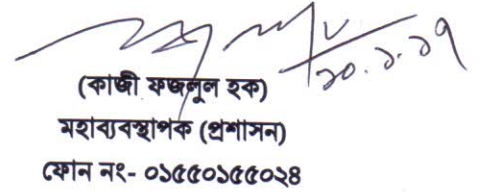 ৩০.১.১৭
(কাজী ফজলুল হক)
মহাব্যবস্থাপক (প্রশাসন)
ফোন নং- ০১৫৫০১৫৫০২৪